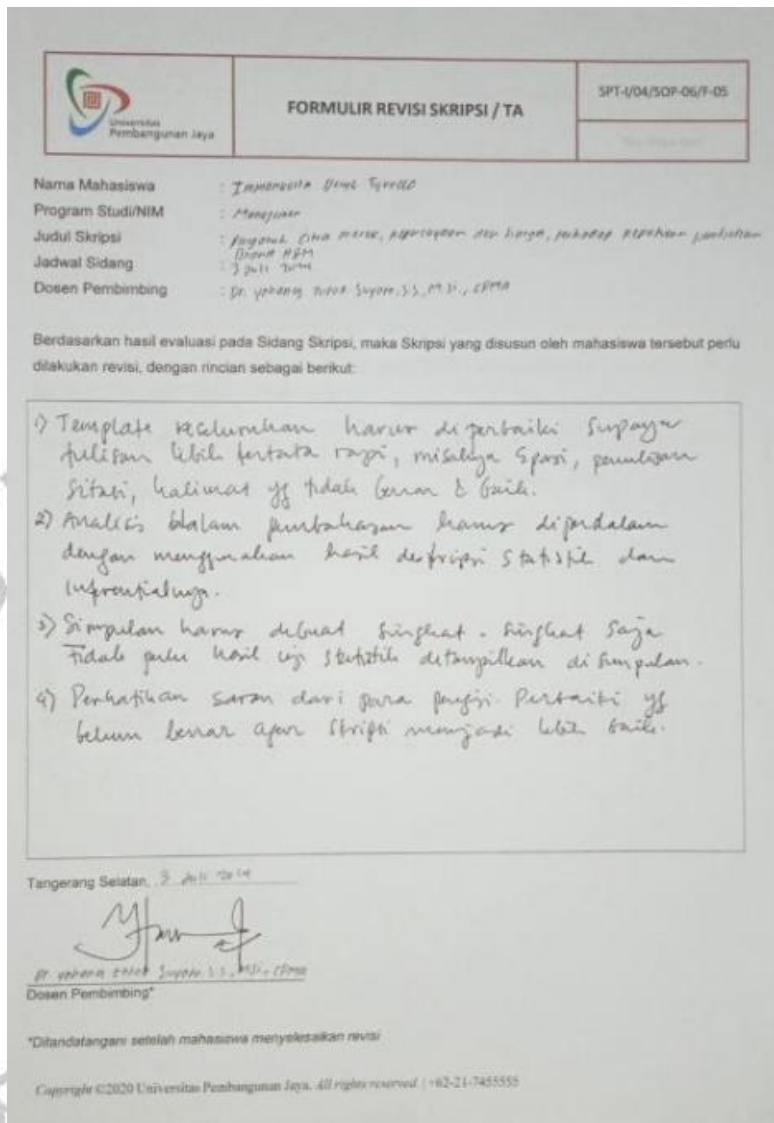 Universitas
Pembangunan Jaya
FORMULIR REVISI SKRIPSI / TA
SPT-I/04/SOP-06/F-05
Nama Mahasiswa :
Program Studi/NIM : Manajemen
Judul Skripsi : Pengaruh Citra merek, kepercayaan dan harga, terhadap keputusan pembelian
Brand H&M
Jadwal Sidang : 3 Juli
Dosen Pembimbing : Dr. Yohanes Totok Suyoto, S.S, M.Si., CPMA
Berdasarkan hasil evaluasi pada Sidang Skripsi, maka Skripsi yang disusun oleh mahasiswa tersebut perlu
dilakukan revisi, dengan rincian sebagai berikut:
1) Template keseluruhan harus diperbaiki supaya
tulisan lebih tertata rapi, misalnya spasi, penulisan
sitasi, kalimat yg tidak benar & baik.
2) Analisis dalam pembahasan harus diperdalam
dengan menggunakan hasil deskripsi statistik dan
3) Simpulan harus dibuat singkat - singkat saja
Tidak perlu hasil uji statistik ditampilkan di simpulan.
4) Perhatikan saran dari para penguji. Perbaiki yg
belum benar agar skripsi menjadi lebih baik.
Tangerang Selatan, 3 Juli
Dr. Yohanes Totok Suyoto, S.S., M.Si., CPMA
Dosen Pembimbing*
*Ditandatangani setelah mahasiswa menyelesaikan revisi
Copyright ©2020 Universitas Pembangunan Jaya. All rights reserved. | +62-21-7455555